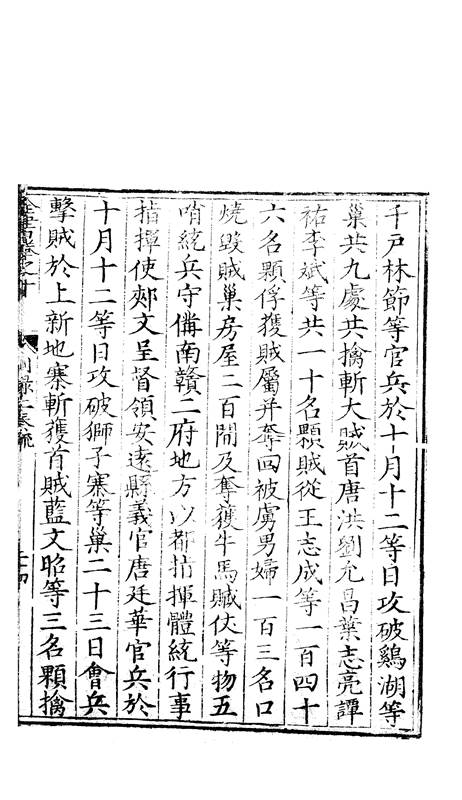 千戶林節等官兵於十月十二等日攻破鷄湖等
巢共九處共擒斬大賊首唐洪劉允昌葉志亮譚
祐李斌等共一十名顆賊從王志成等一百四十
六名顆俘獲賊屬并奪回被虜男婦一百三名口
燒毀賊巢房屋二百間及奪獲牛馬贓仗等物五
哨統兵守備南贛二府地方以都指揮體統行事
指揮使郟文呈督領安遠縣義官唐廷華官兵於
十月十二等日攻破獅子寨等巢二十三日會兵
擊賊於上新地寨斬獲首賊藍文昭等三名顆擒